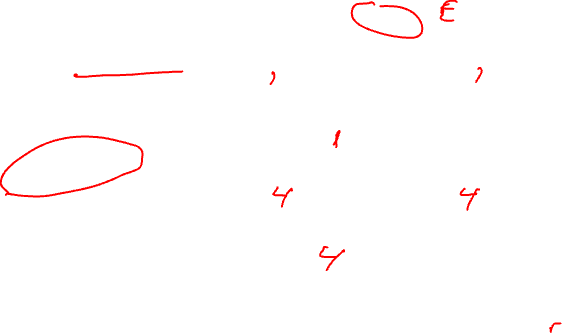 E
, ,
1
4 4
4